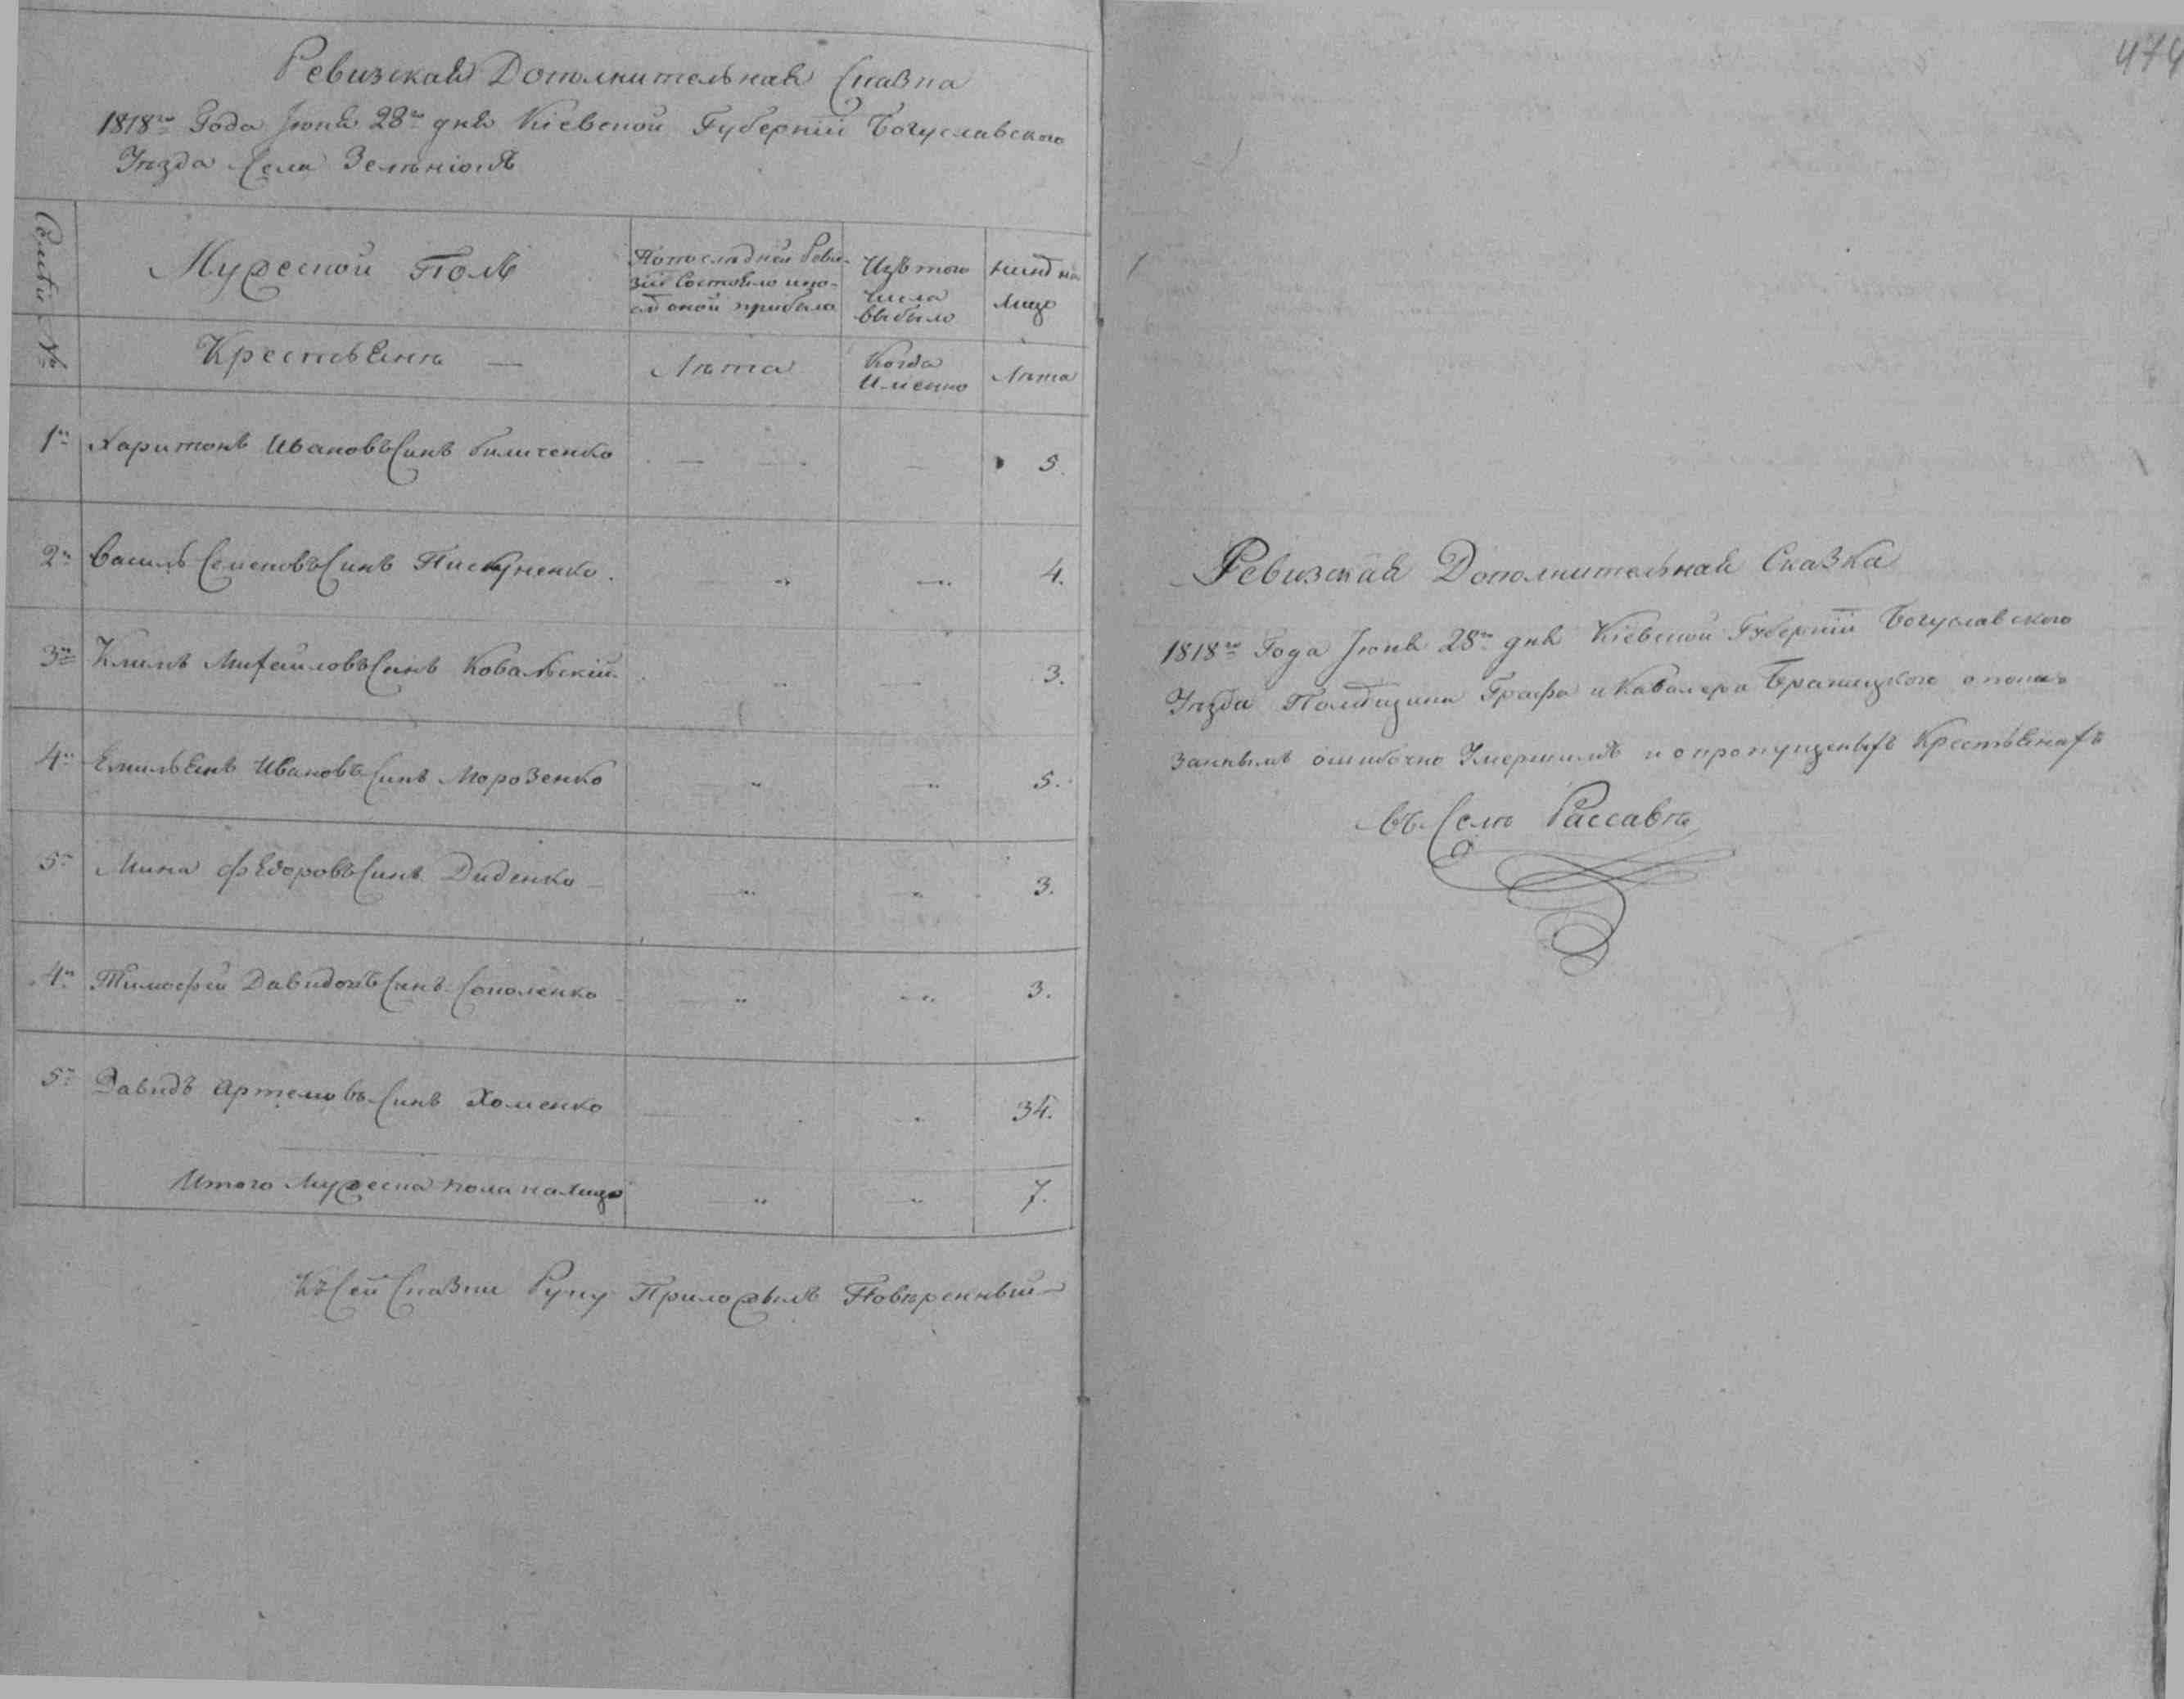 Ревизская Дополнительная Сказка
1818го Года Июня 28го дня Кіевской Губерніи Богуславского
Уѣзда Села Зелѣнюкъ
Семьи №
Мужеской Полъ
По последней Реви-
зіи Состояло и по-
сл оной прибыло
Изъ того
числа
выбыло
Нинѣ на
лицо
Крестьянѣ —
Лѣта
Когда
Именно
Лѣта
1й Харитонъ Ивановъ Синъ Биличенко — — 5.
2й Василь Семеновъ Синъ Пискуненко. — — 4.
3й Климъ Михайловъ Синъ Ковальскій. — — 3.
4й Емильянъ Ивановъ Синъ Морозенко — — 5.
5й Мина Федоровъ Синъ Диденко — — 3.
4й Тимофей Давидовъ Синъ Соколенко — — 3.
5й Давидъ Артемовъ Синъ Хоменко — — 34.
Итого Мужеска пола налицо — — 7.
Къ Сей Сказки Руку Приложилъ Повѣренный
474
Ревизская Дополнительная Сказка
1818го Года Июня 28го дня Кіевской Губерніи Богуславского
Уѣзда Помѣщика Графа и Кавалера Браницкого о пока-
занныхъ ошибочно Умершими и о пропущеныхъ Крестьянахъ
въ Селѣ Рассавѣ